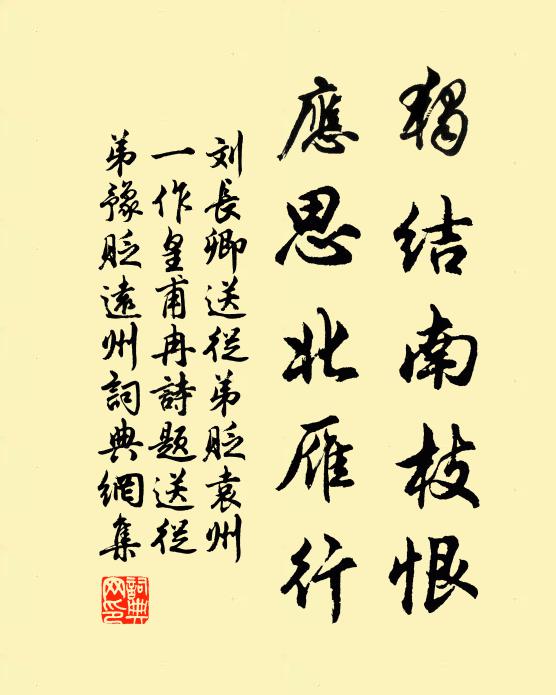 獨结南枝恨
應思北雁行
刘長卿送從弟貶袁州
一作皇甫冉詩題送從
弟豫貶遠州詞典網集